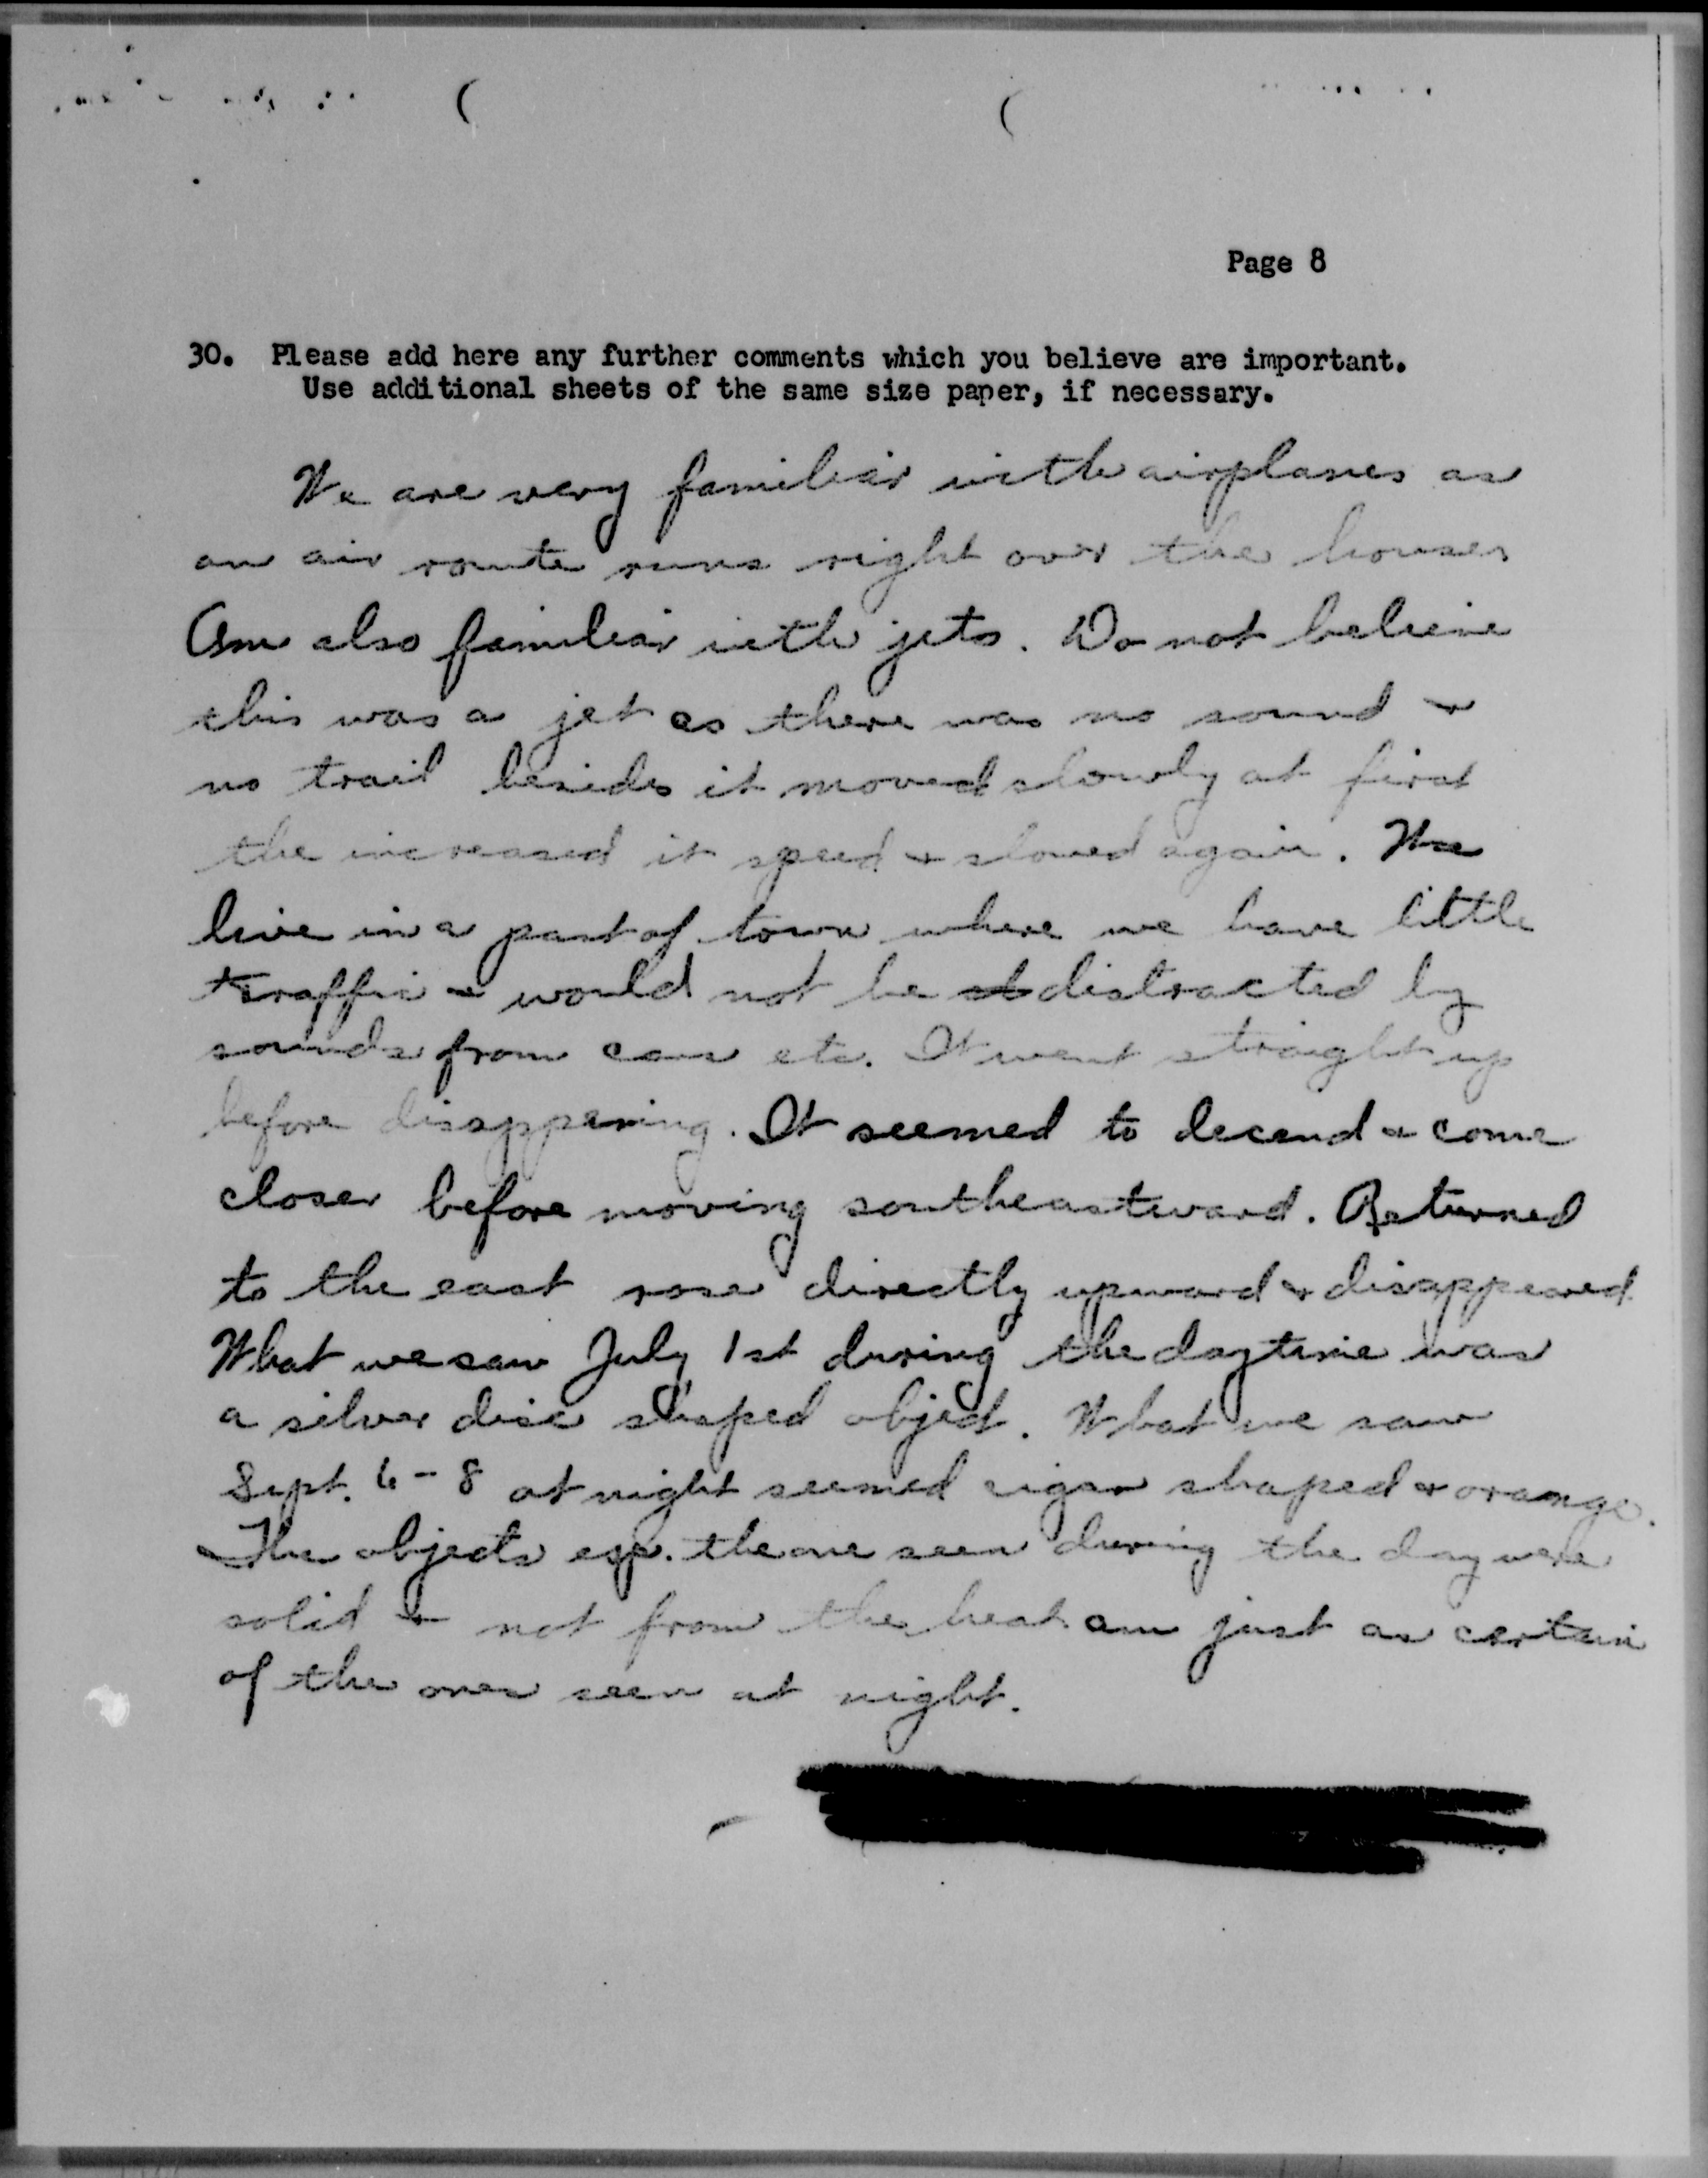 Page 8
30. Please add here any further comments which you believe are important.
Use additional sheets of the same size paper, if necessary.
We are very familiar with airplanes as
an air route runs right over the house
Am also familiar with jets. Do not believe
this was a jet as there was no sound &
no trail besides it moved slowly at first
the increased it speed & slowed again. We
live in a part of town where we have little
traffic & would not be distracted by
sounds from cars etc. It went straight up
before disappering. It seemed to decend & come
closer before moving southeastward. Returned
to the east rose directly upward & disappeared
What we saw July 1st during the daytime was
a silver disc shaped object. What we saw
Sept. 6-8 at night seemed cigar shaped & orange.
The objects esp. the one seen during the day were
solid & not from the heat am just as certain
of the ones seen at night.